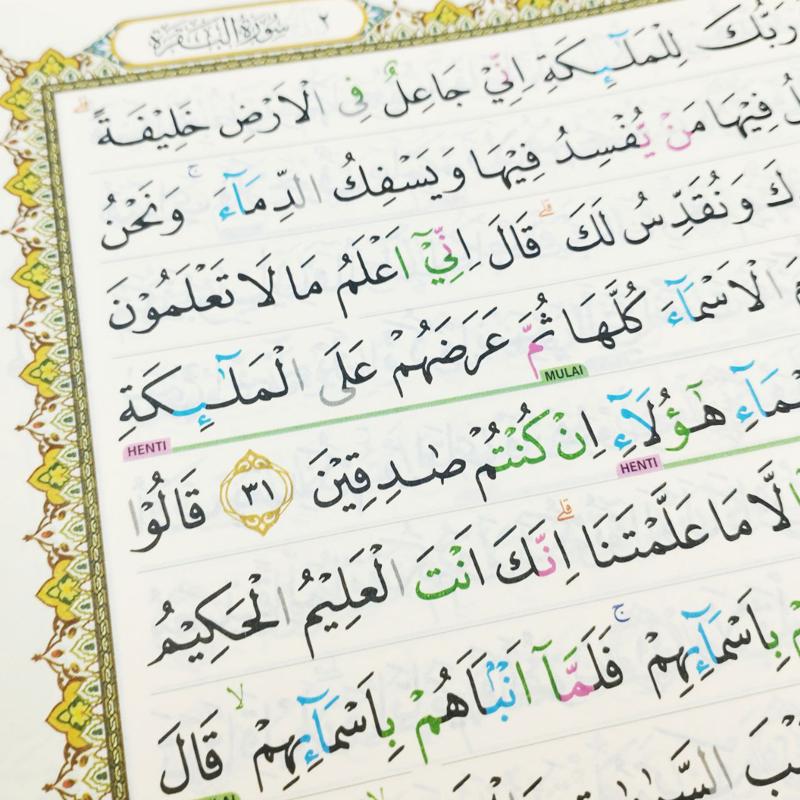 ٢ سُوْرَةُ الْبَقَرَة
رَبُّكَ لِلْمَلٰۤىِٕكَةِ اِنِّيْ جَاعِلٌ فِى الْاَرْضِ خَلِيْفَةً ۗ
فِيْهَا مَنْ يُّفْسِدُ فِيْهَا وَيَسْفِكُ الدِّمَاۤءَ ۚ وَنَحْنُ
وَنُقَدِّسُ لَكَ ۗ قَالَ اِنِّيْٓ اَعْلَمُ مَا لَا تَعْلَمُوْنَ
الْاَسْمَاۤءَ كُلَّهَا ثُمَّ عَرَضَهُمْ عَلَى الْمَلٰۤىِٕكَةِ
MULAI
HENTI
هٰٓؤُلَاۤءِ اِنْ كُنْتُمْ صٰدِقِيْنَ ٣١ قَالُوْا
HENTI
لَآ مَا عَلَّمْتَنَا ۗاِنَّكَ اَنْتَ الْعَلِيْمُ الْحَكِيْمُ
بِاَسْمَاۤىِٕهِمْ ۚ فَلَمَّآ اَنْۢبَاَهُمْ بِاَسْمَاۤىِٕهِمْ ۙ قَالَ